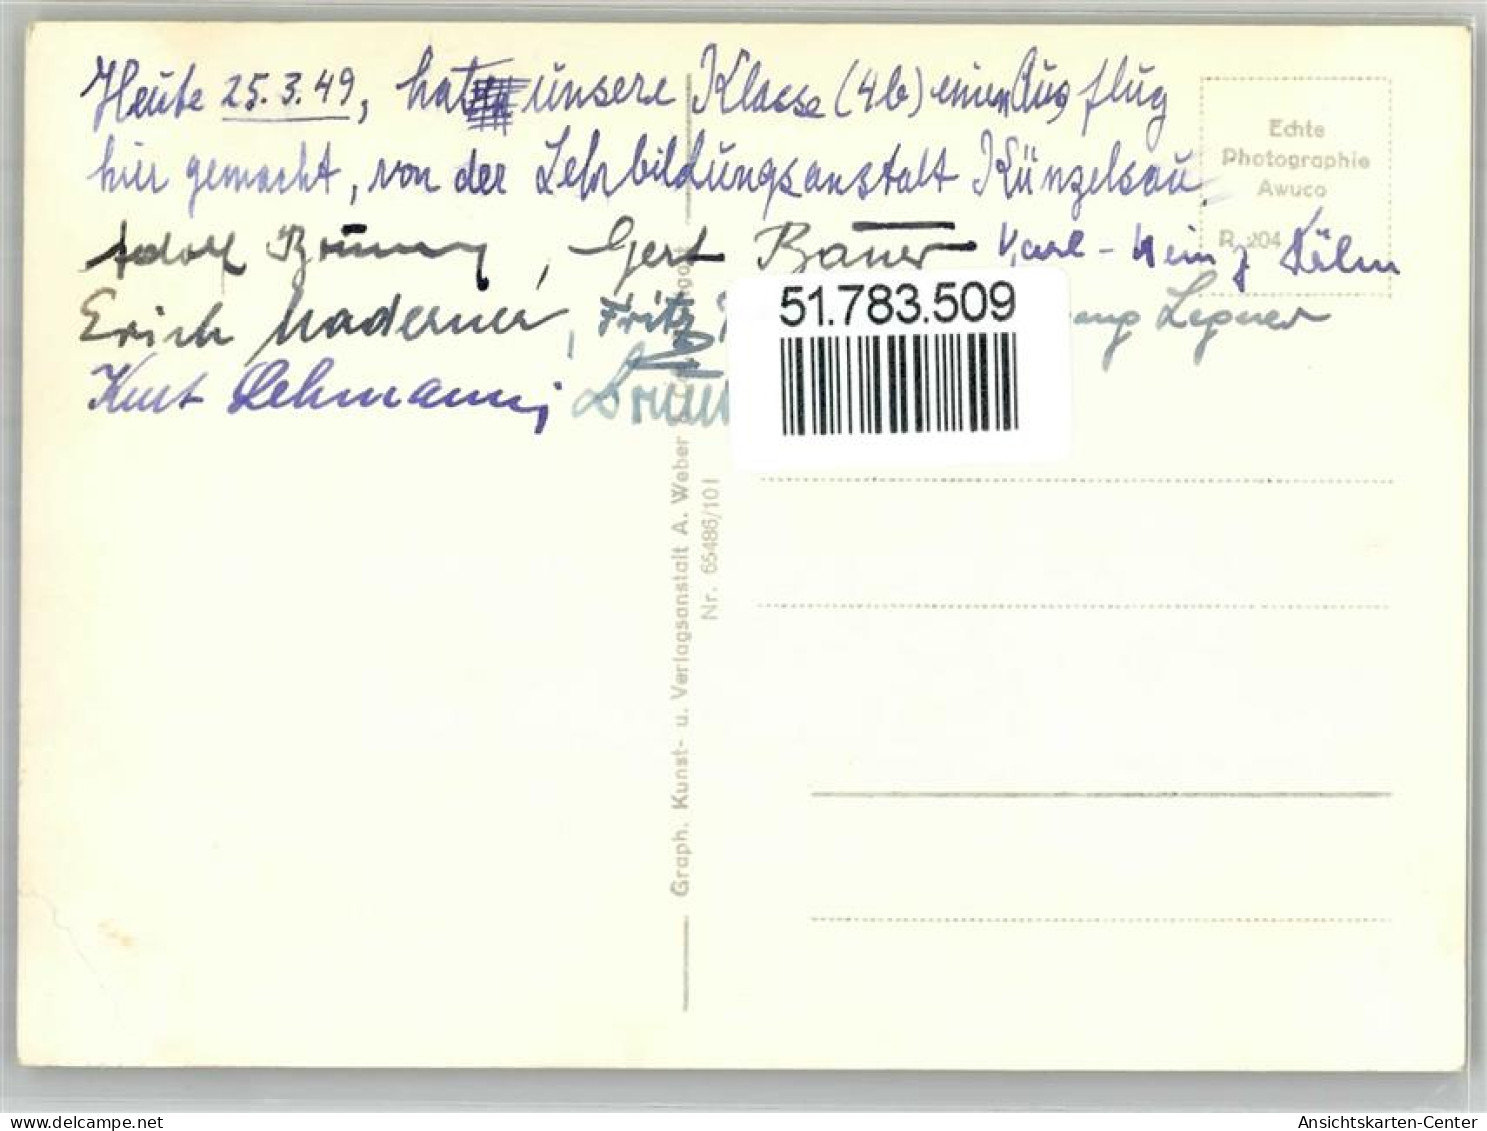 Heute 25.3.49, hat unsere Klasse (4b) einen Ausflug
hier gemacht, von der Lehrbildungsanstalt Künzelsau.
Adolf , Gert Bauer Karl-Heinz Kölm
Erich Maderner, Fritz
Kurt Lehmann,
51.783.509
Echte
Photographie
Awuco
R 204
Graph. Kunst- u. Verlagsanstalt A. Weber
Nr. 65486/101
delcampe.net
Ansichtskarten-Center